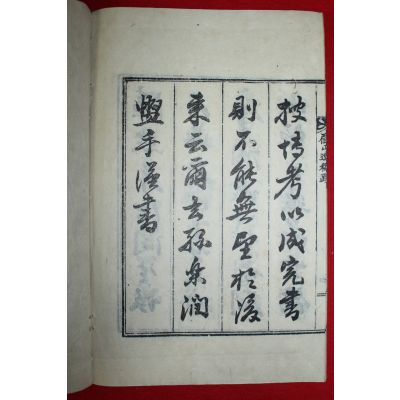 披博考以成完書
則不能無望於後
來云爾玄孫樂潤
盥手謹書